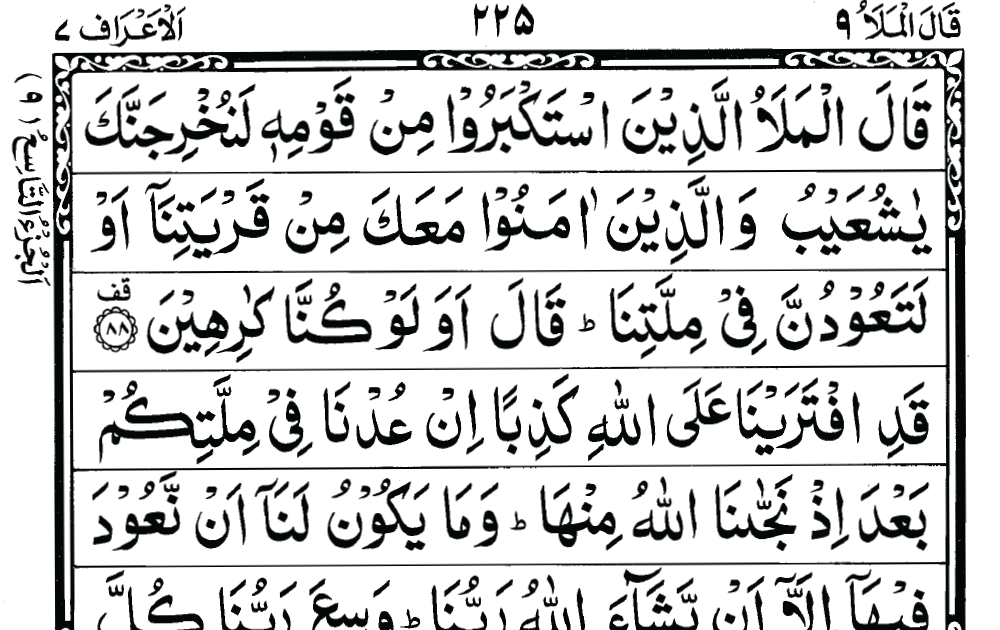 قَالَ الْمَلَاُ ۹
۲۲۵
اَلْاَعْرَاف ۷
اَلْجُزْءُ التَّاسِعُ (۹)
قَالَ الْمَلَاُ الَّذِيْنَ اسْتَكْبَرُوْا مِنْ قَوْمِهٖ لَنُخْرِجَنَّكَ
يٰشُعَيْبُ وَالَّذِيْنَ اٰمَنُوْا مَعَكَ مِنْ قَرْيَتِنَاۤ اَوْ
لَتَعُوْدُنَّ فِيْ مِلَّتِنَا ؕ قَالَ اَوَلَوْ كُنَّا كٰرِهِيْنَ ۟قف ۸۸
قَدِ افْتَرَيْنَا عَلَى اللّٰهِ كَذِبًا اِنْ عُدْنَا فِيْ مِلَّتِكُمْ
بَعْدَ اِذْ نَجّٰىنَا اللّٰهُ مِنْهَا ؕ وَمَا يَكُوْنُ لَنَاۤ اَنْ نَّعُوْدَ
فِيْهَاۤ اِلَّاۤ اَنْ يَّشَآءَ اللّٰهُ رَبُّنَا ؕ وَسِعَ رَبُّنَا كُلَّ